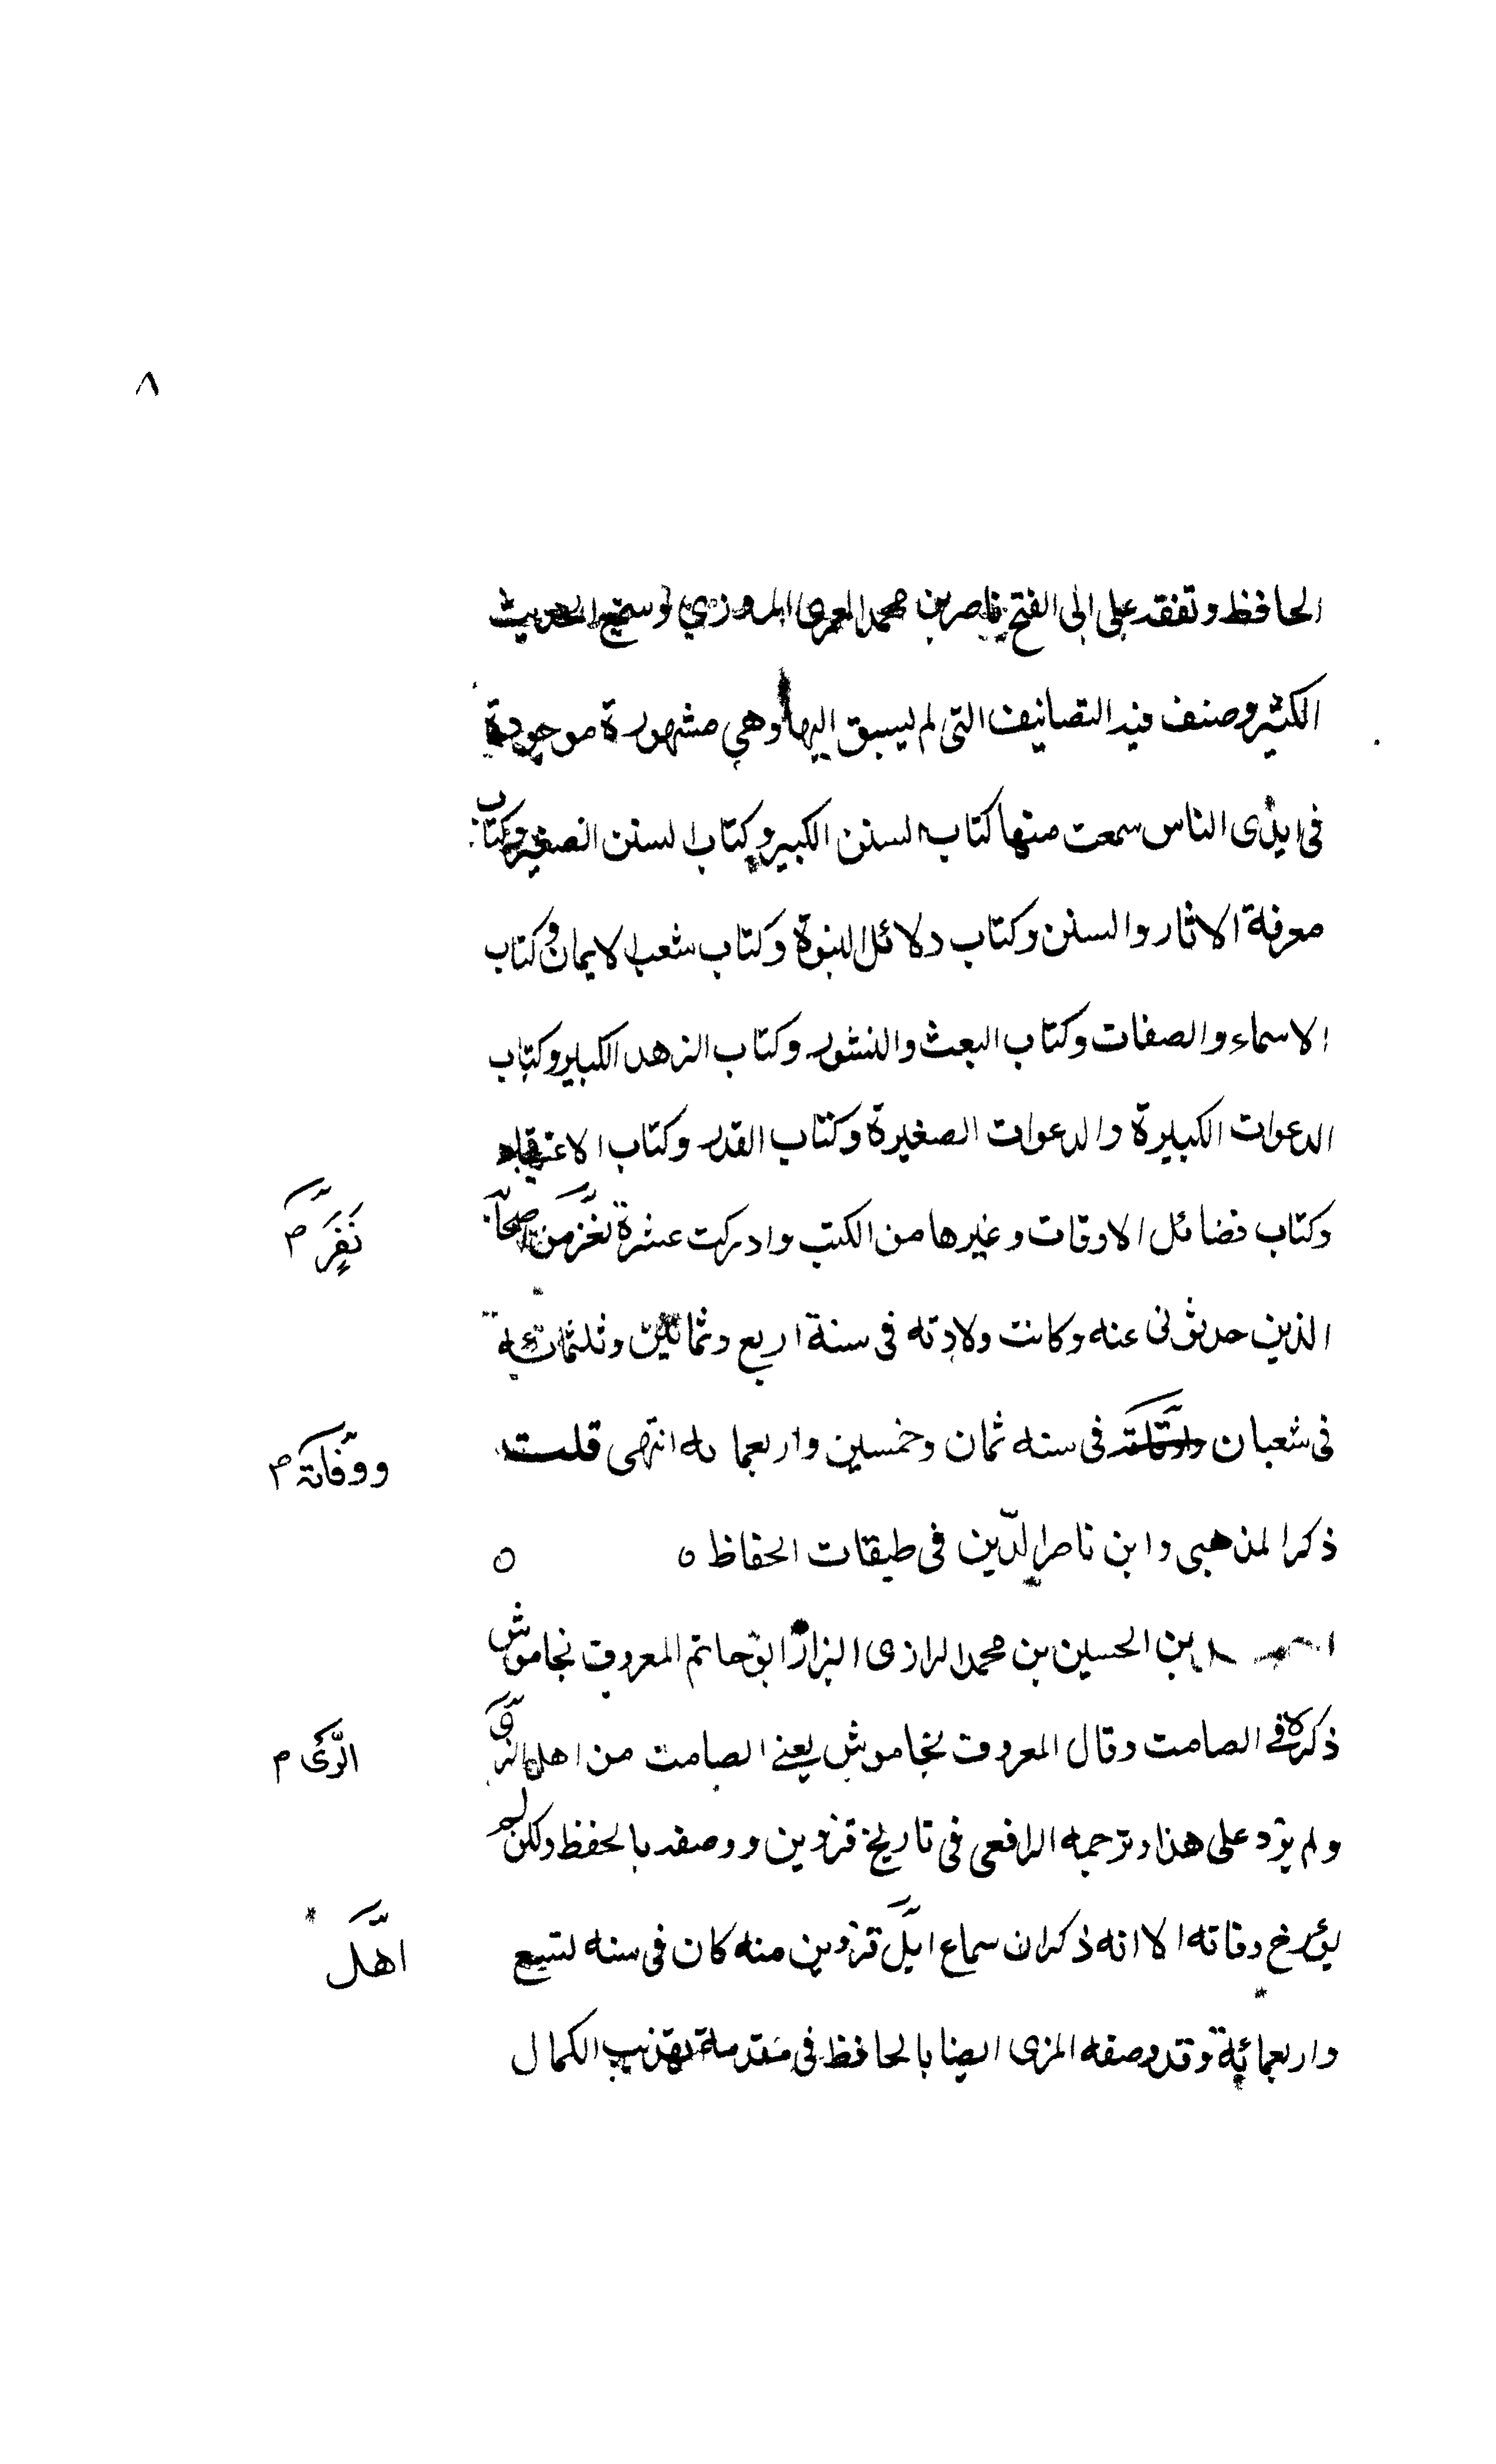 ٨
الحافظ وتفقه على ابى الفتح ناصر بن محمد العمرى المروزي وسمع الحديث
الكثير وصنف فيه التصانيف التى لم يسبق اليها وهي مشهورة موجودة
فى ايدى الناس سمعت منها كتاب السنن الكبير وكتاب السنن الصغير وكتاب
معرفة الاثار والسنن وكتاب دلائل النبوة وكتاب شعب الايمان وكتاب
الاسماء والصفات وكتاب البعث والنشور وكتاب الزهد الكبير وكتاب
الدعوات الكبيرة والدعوات الصغيرة وكتاب القدر وكتاب الاعتقاد
وكتاب فضائل الاوقات وغيرها من الكتب وادركت عشرة نفر من اصحابه
نَفَرٍ م
الذين حدثونى عنه وكانت ولادته فى سنة اربع وثمانين وثلثمائة
فى شعبان فى سنه ثمان وخمسين واربعمايه انتهى قلت
ووفاته م
ذكر الذهبى وابن ناصر الدّين فى طبقات الحفاظ ٥ ٥
بن الحسين بن محمد الرازى البزاز ابو حاتم المعروف بخاموش
ذكره في الصامت وقال المعروف بخاموش يعنے الصامت من اهل الرى
الرَّى م
ولم يزد على هذا وترجمه الرافعى فى تاريخ قزوين ووصفه بالحفظ ولكن لم
يؤرخ وفاته الا انه ذكر ان سماع اهل قزوين منه كان فى سنه تسع
اهل
واربعمائة وقد وصفه المزى ايضا بالحافظ فى مقدمة تهذيب الكمال